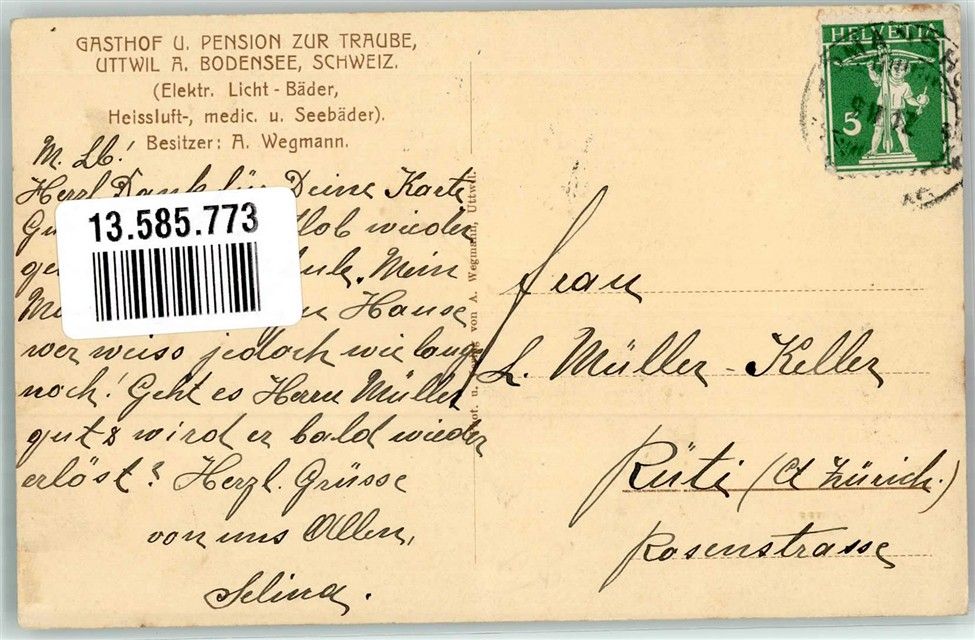 GASTHOF U. PENSION ZUR TRAUBE,
UTTWIL A. BODENSEE, SCHWEIZ.
(Elektr. Licht-Bäder,
Heissluft-, medic. u. Seebäder).
Besitzer: A. Wegmann.
M. Lb!
Herzl. Dank für Deine Karte
wieder
Mein
Hause
wer weiss jedoch wie lang
noch! Geht es Herrn Müller
gut & wird er bald wieder
erlöst? Herzl. Grüsse
von uns Allen,
Selina.
13.585.773
von A. Wegmann, Uttwil.
HELVETIA
5
Frau
L. Müller-Keller
Rüti (Ct Zürich.)
Rosenstrasse